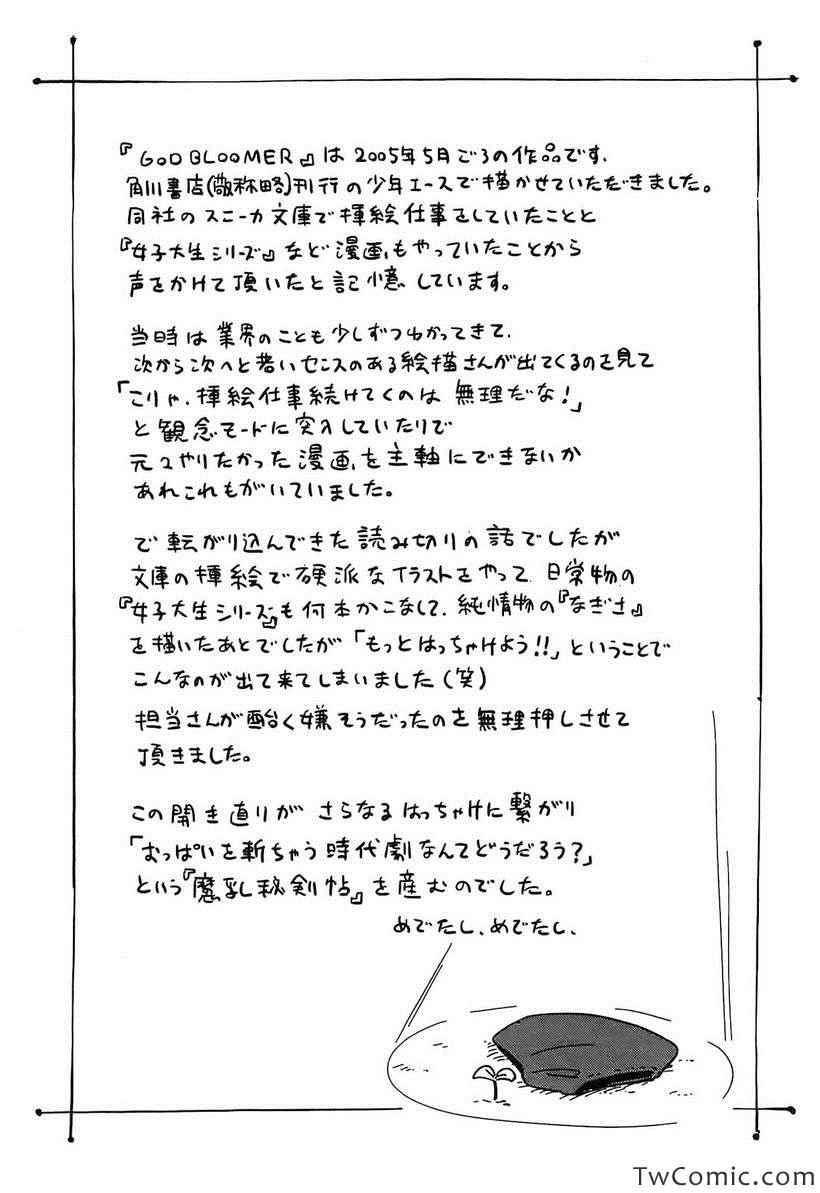 『GOD BLOOMER』は2005年5月ごろの作品です.
角川書店(敬称略)刊行の少年エースで描かせていただきました。
同社のスニーカ文庫で挿絵仕事をしていたことと
『女子大生シリーズ』など漫画もやっていたことから
声をかけて頂いたと記憶しています。
当時は業界のことも少しずつわかってきて.
次から次へと若いセンスのある絵描さんが出てくるのを見て
「こりゃ.挿絵仕事続けてくのは無理だな!」
と観念モードに突入していたりで
元々やりたかった漫画を主軸にできないか
あれこれもがいていました。
で転がり込んできた読み切りの話でしたが
文庫の挿絵で硬派なイラストをやって.日常物の
『女子大生シリーズ』も何本かこなして.純情物の『なぎさ』
を描いたあとでしたが「もっとはっちゃけよう!!」ということで
こんなのが出て来てしまいました(笑)
担当さんが酷く嫌そうだったのを無理押しさせて
頂きました。
この開き直りが さらなるはっちゃけに繋がり
「おっぱいを斬ちゃう時代劇なんてどうだろう?」
という『魔乳秘剣帖』を産むのでした。
めでたし、めでたし、
TwComic.com